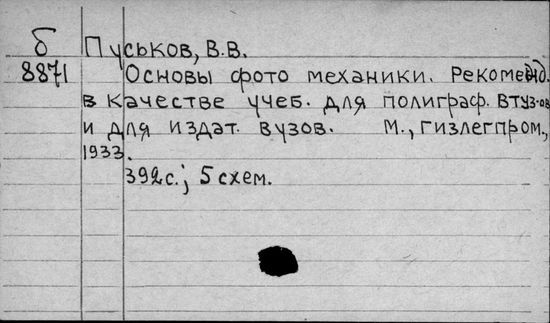 б Пуськов, В.В.
8871 Основы фото механики. Рекоменд.
в качестве учеб. для полиграф. втуз-ов
и для издат. вузов. М., Гизлегпром,
1933.
392с.; 5 схем.